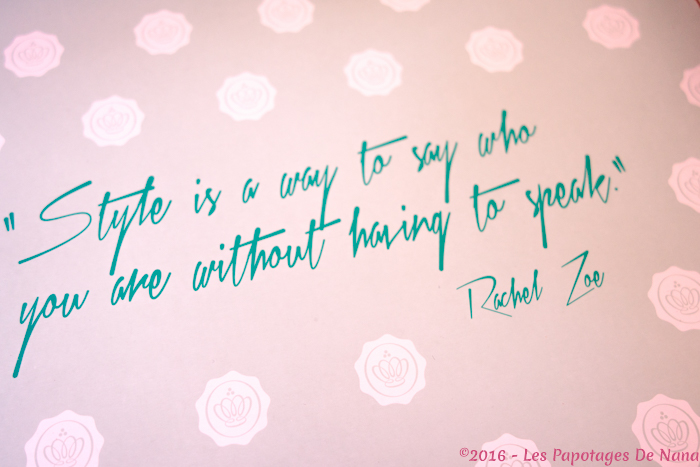 "Style is a way to say who
you are without having to speak."
Rachel Zoe
©2016 - Les Papotages De Nana